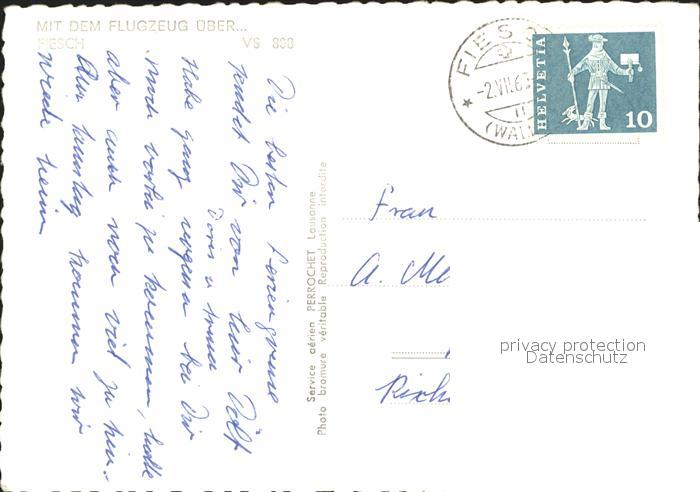 MIT DEM FLUGZEUG ÜBER...
FIESCH VS 808
Die besten Feriengrüsse
sendet Dir von hier Dölf
Doris u
Habe ganz vergessen bei Dir
noch vorbei zu kommen, hatte
aber auch noch viel zu tun.
Am kommen wir
wieder heim
Service aérien PERROCHET Lausanne
Photo bromure véritable Reproduction interdite
FIES
-2.VII.6
(WAL
HELVETIA
10
Frau
A. Me
Rich
privacy protection
Datenschutz